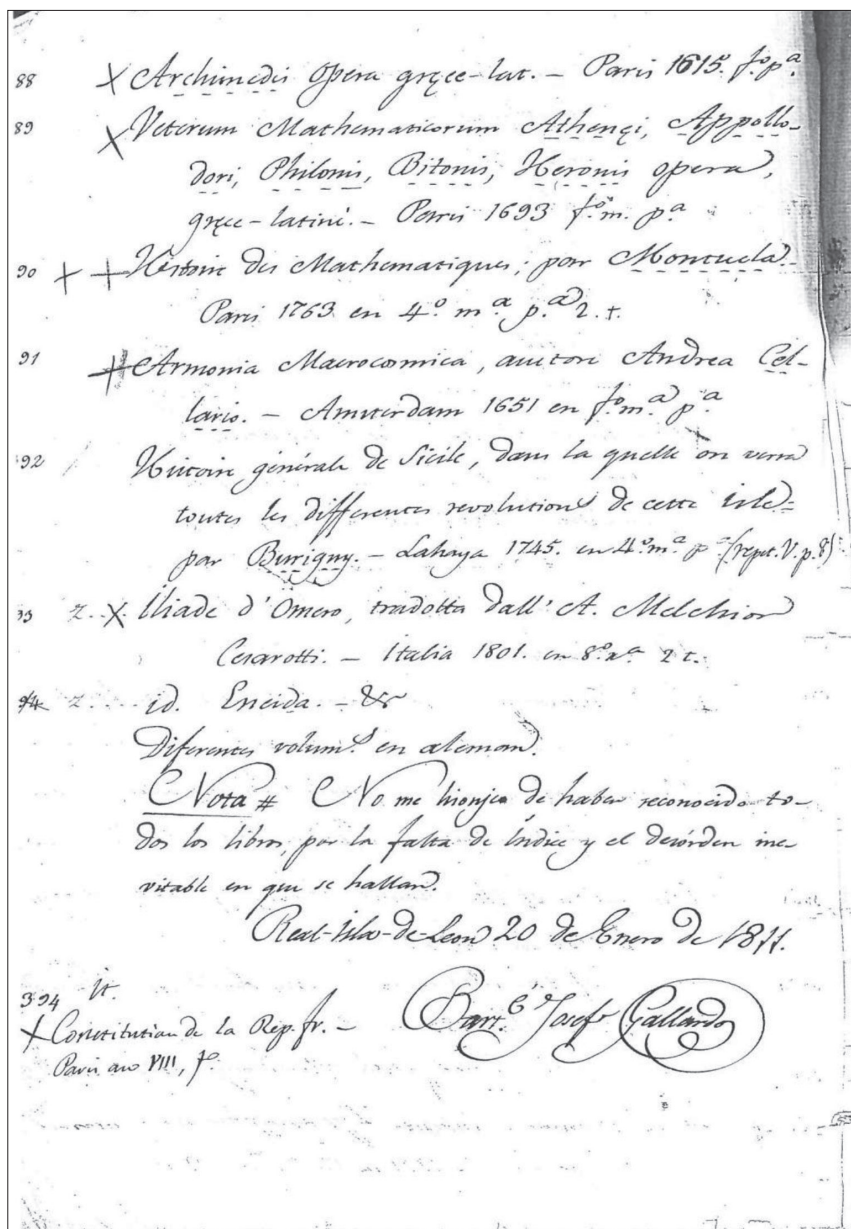 88 X Archimedis opera gręce-lat. — Paris 1615. fº. pª.
89 X Veterum Mathematicorum Athenęi, Appollo-
dori, Philonis, Bitonis, Heronis opera,
gręce-latinè. — Paris 1693 fº. m. pª
90 + + Histoire des Mathematiques; par Montucla.
Paris 1763 en 4º. mª. p.ª 2. t.
91 + Armonia Macrocosmica, auctore Andrea Cel-
lario. — Amsterdam 1651 en fº. mª. pª
92 / Histoire générale de Sicile, dans la quelle on verra
toutes les differentes revolutions de cette isle=
par Burigny. — Lahaya 1745. en 4º. mª. pª (repet. V. p. 8)
93 2.. X Iliade d'Omero, tradotta dall' A. Melchior
Cesarotti. — Italia 1801. en 8º. 2 t.
94 2.... id. Eneida. — &c
Diferentes volum.s en aleman.
Nota # No me lisonjeo de haber reconocido to-
dos los libros, por la falta de índice y el desórden ine-
vitable en que se hallan.
Real-Isla-de-Leon 20 de Enero de 1811.
394 It.
X Constitution de la Rep. fr. —
Paris año VIII, fº.
Bart.é Josef Gallardo